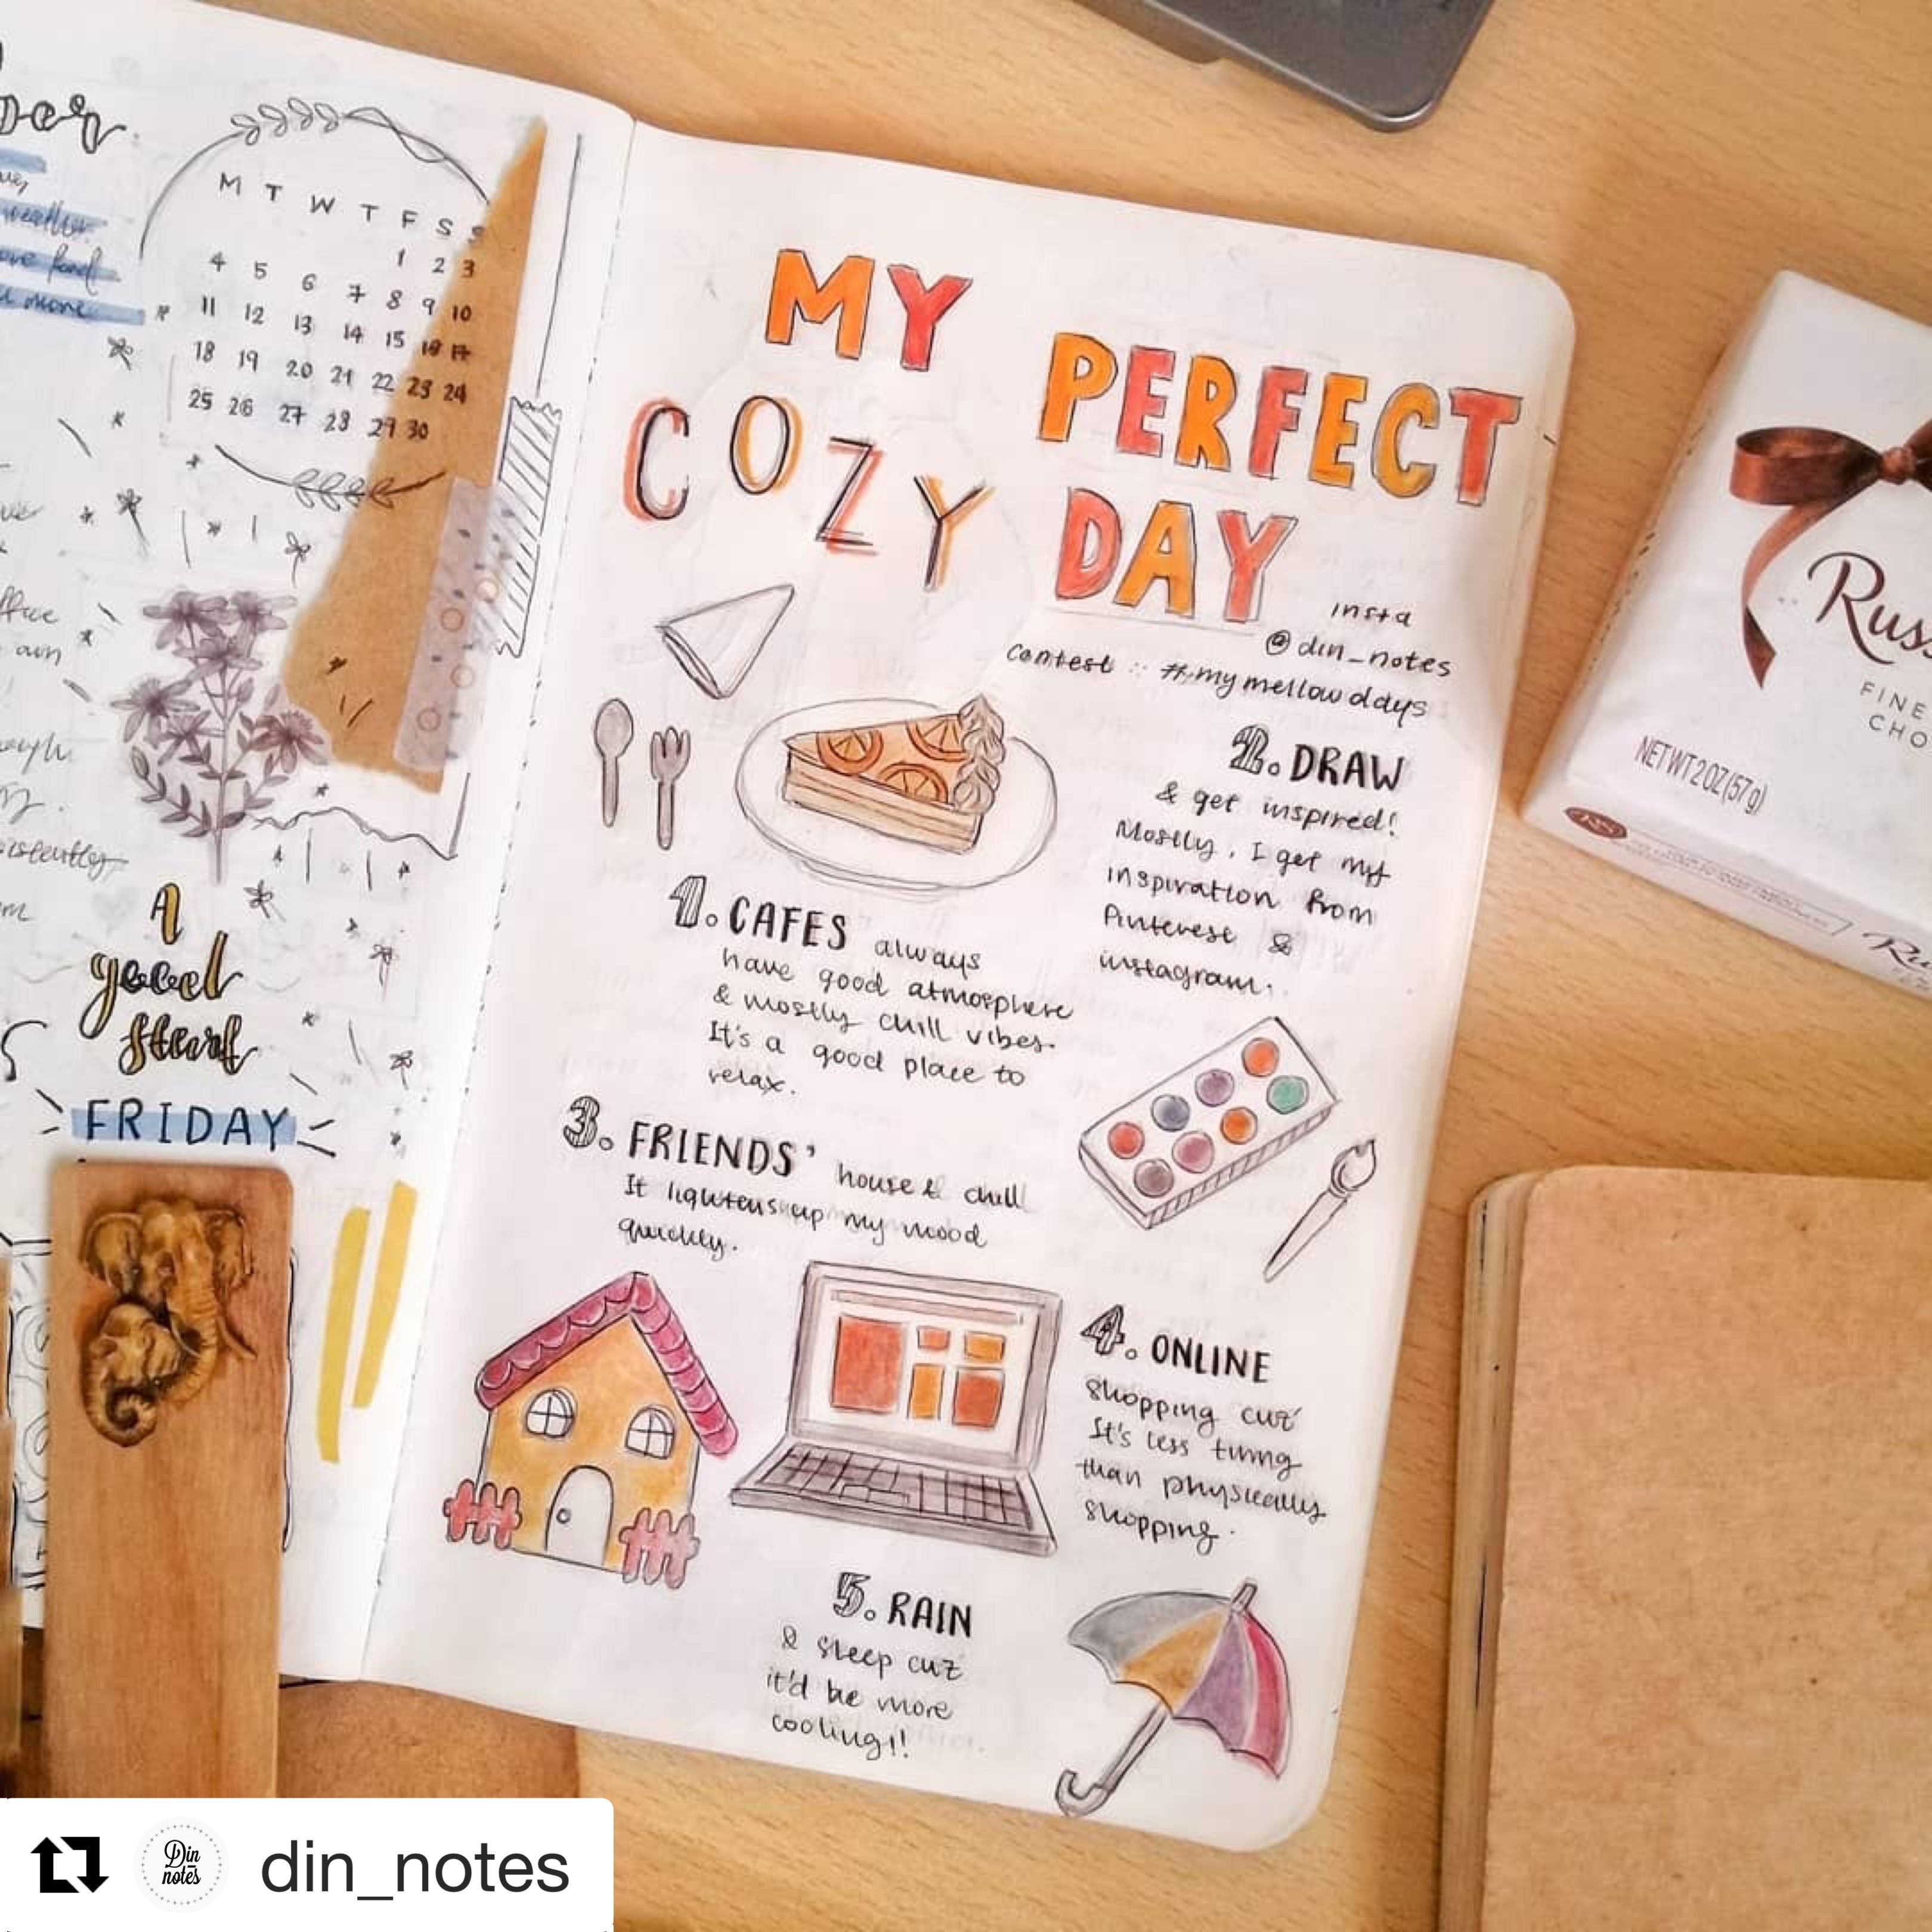 M T W T F S S
1 2 3
4 5 6 7 8 9 10
11 12 13 14 15 16 17
18 19 20 21 22 23 24
25 26 27 28 29 30
A
good
start
FRIDAY
MY
PERFECT
COZY
DAY
insta
@din_notes
contest :: #mymellowdays
1. CAFES always
have good atmosphere
& mostly chill vibes.
It's a good place to
relax.
2. DRAW
& get inspired!
Mostly, I get my
inspiration from
Pinterest &
instagram.
3. FRIENDS' house & chill
It lightens up my mood
quickly.
4. ONLINE
shopping cuz
It's less tiring
than physically
shopping.
5. RAIN
& sleep cuz
it'd be more
cooling!!
Russ
FINE
CHO
NET WT 2 OZ (57g)
RS
Ru
Din
notes
din_notes